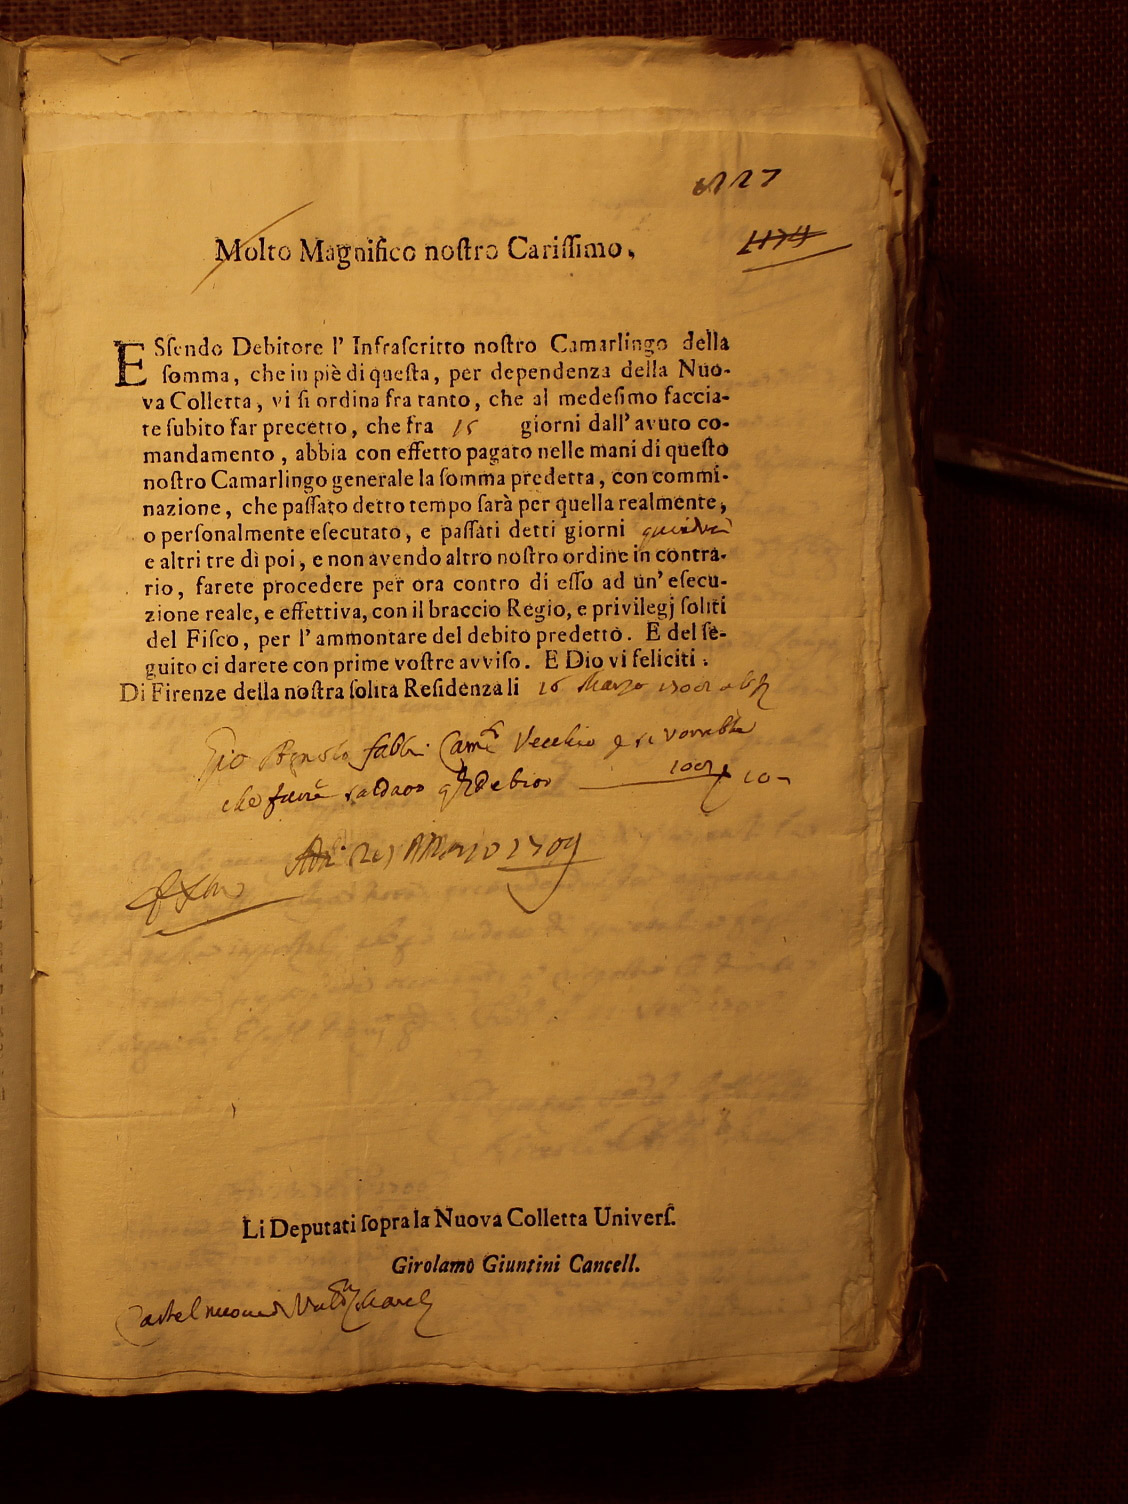 1227
1174
Molto Magnifico nostro Carissimo,
ESsendo Debitore l' Infrascritto nostro Camarlingo della
somma, che in piè di questa, per dependenza della Nuo-
va Colletta, vi si ordina fra tanto, che al medesimo faccia-
te subito far precetto, che fra 15 giorni dall' avuto co-
mandamento, abbia con effetto pagato nelle mani di questo
nostro Camarlingo generale la somma predetta, con commi-
nazione, che passato detto tempo sarà per quella realmente,
o personalmente esecutato, e passati detti giorni quindici
e altri tre di poi, e non avendo altro nostro ordine in contra-
rio, farete procedere per ora contro di esso ad un' esecu-
zione reale, e effettiva, con il braccio Regio, e privilegj soliti
del Fisco, per l' ammontare del debito predetto. E del se-
guito ci darete con prime vostre avviso. E Dio vi feliciti.
Di Firenze della nostra solita Residenza li 16 Marzo
Gio Agnolo fabbri Vecchio
che saldare 10
1709
Li Deputati sopra la Nuova Colletta Univers.
Girolamo Giuntini Cancell.